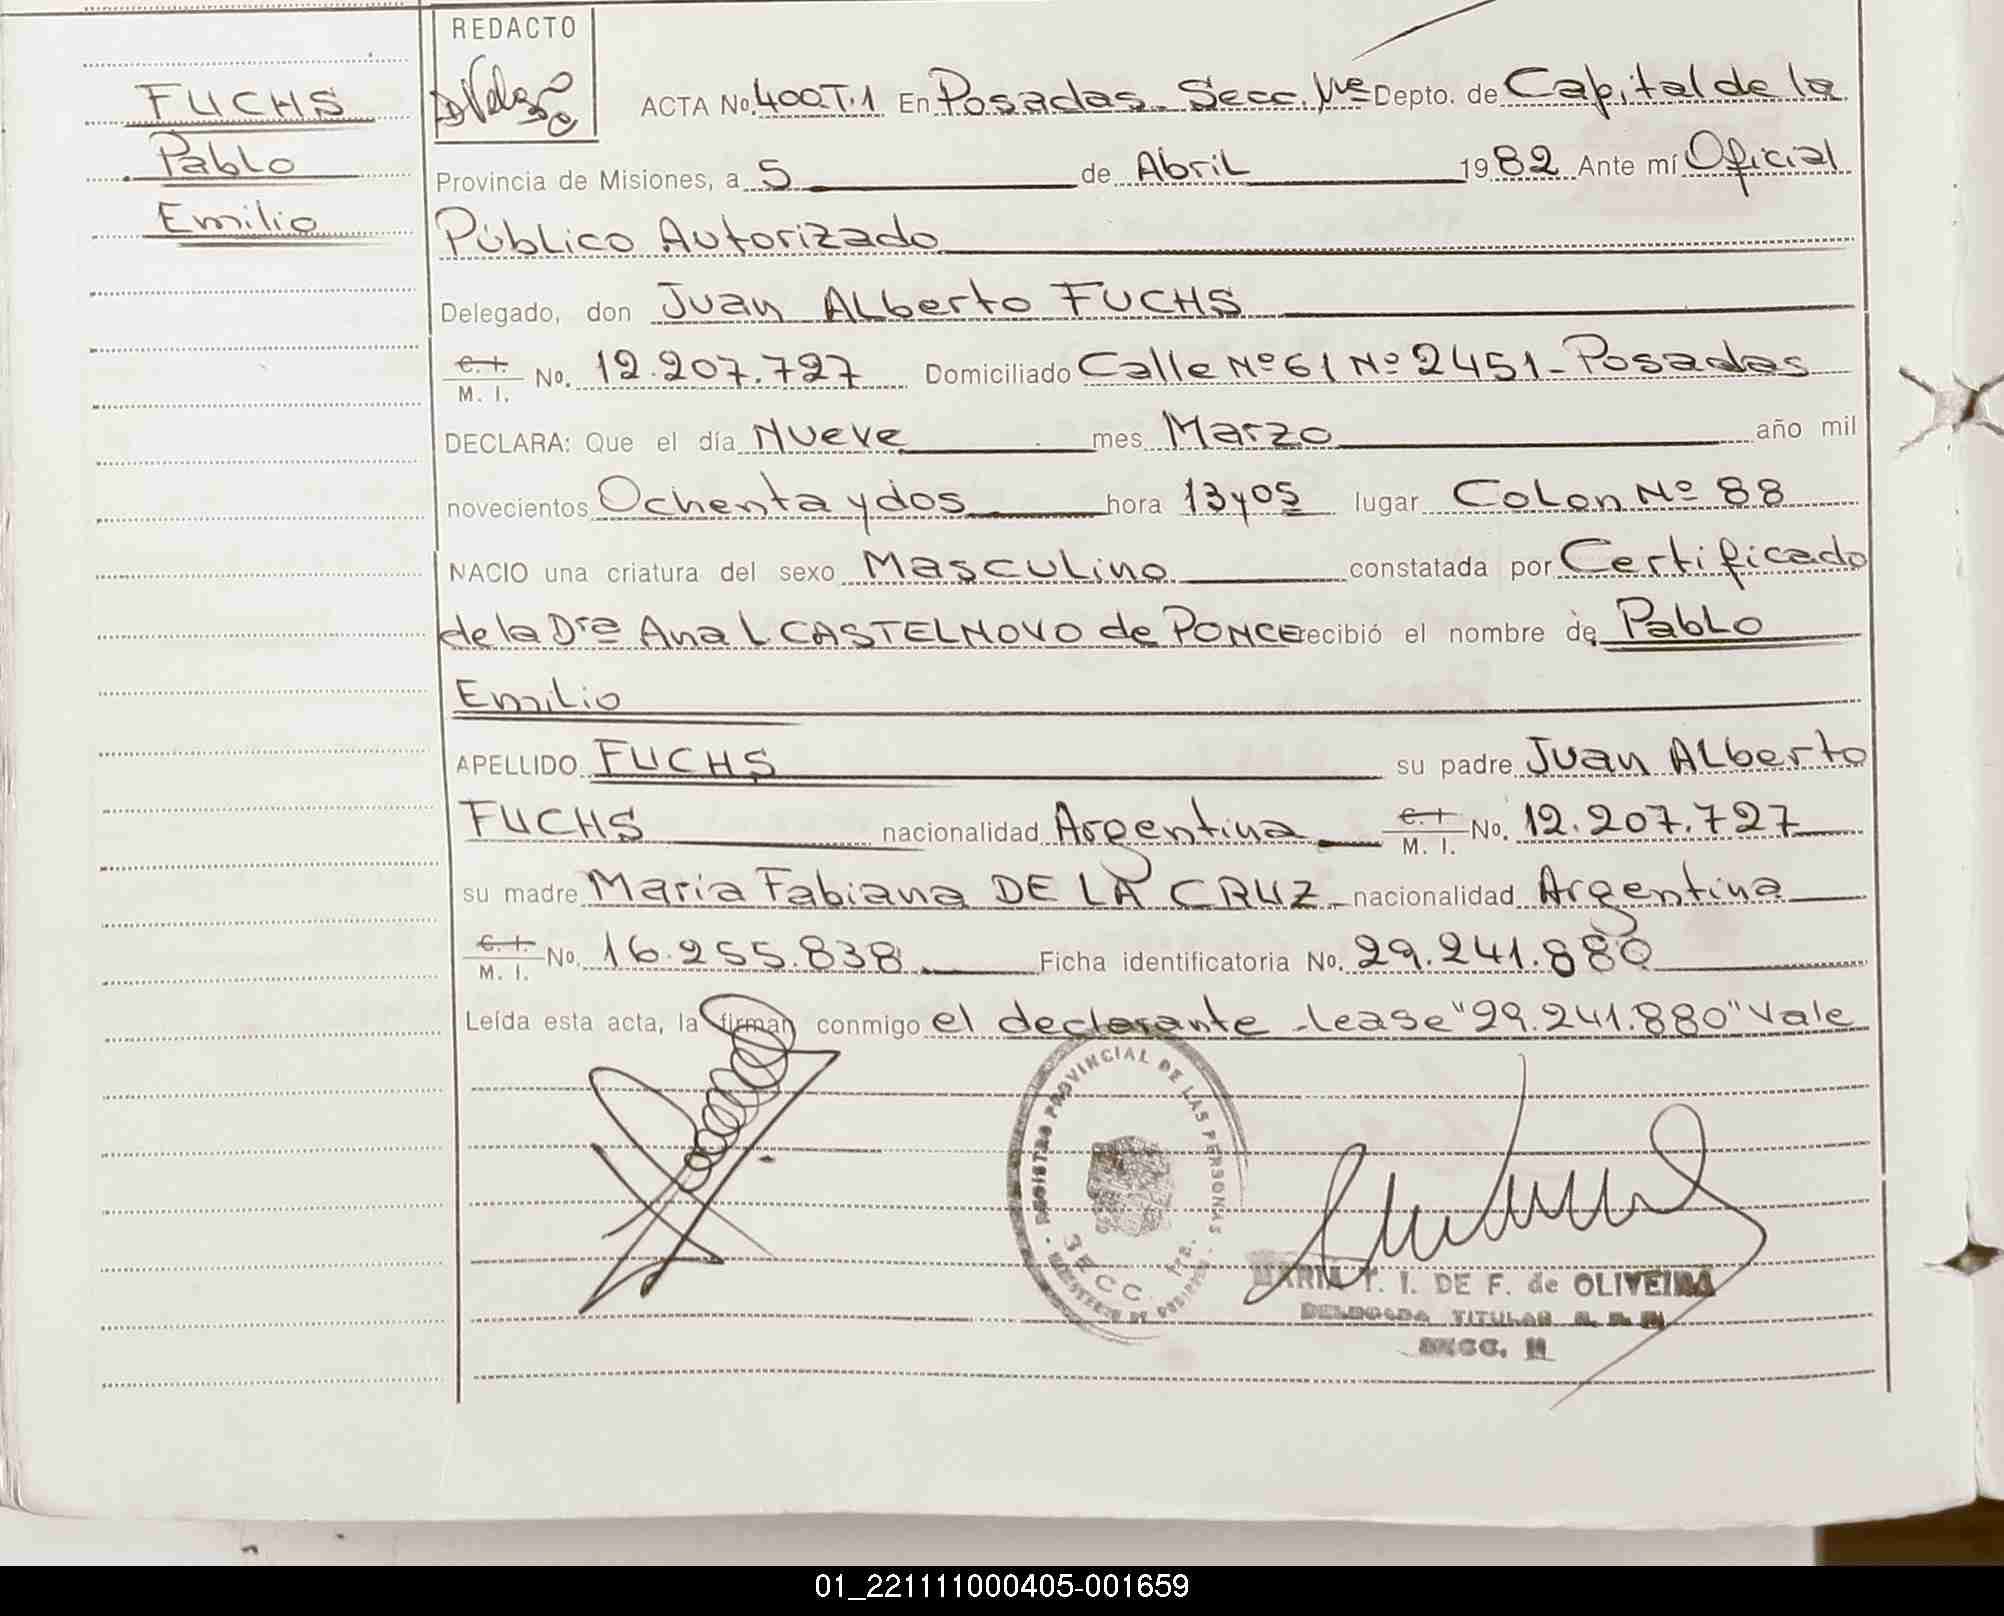 REDACTO
FUCHS
Pablo
Emilio
ACTA No. 400.T.1 En Posadas. Secc. Depto. de Capital de la
Provincia de Misiones, a 5 de Abril 1982 Ante mí Oficial
Público Autorizado
Delegado, don Juan Alberto FUCHS
C. I. / M. I. No. 12.207.727 Domiciliado Calle Nº 61 Nº 2451 - Posadas
DECLARA: Que el día Nueve mes Marzo año mil
novecientos Ochenta y dos hora 13 y 05 lugar Colon Nº 88
NACIO una criatura del sexo Masculino constatada por Certificado
de la Dra Ana L CASTELNOVO de PONCE recibió el nombre de Pablo
Emilio
APELLIDO FUCHS su padre Juan Alberto
FUCHS nacionalidad Argentina C. I. / M. I. No. 12.207.727
su madre Maria Fabiana DE LA CRUZ nacionalidad Argentina
C. I. / M. I. No. 16.255.838 Ficha identificatoria No. 29.241.880
Leída esta acta, la firman conmigo el declarante - Lease "29.241.880" Vale
REGISTRO PROVINCIAL DE LAS PERSONAS
SECC.
MARIA T. I. DE F. de OLIVEIRA
DELEGADA TITULAR
SECC.
01_221111000405-001659